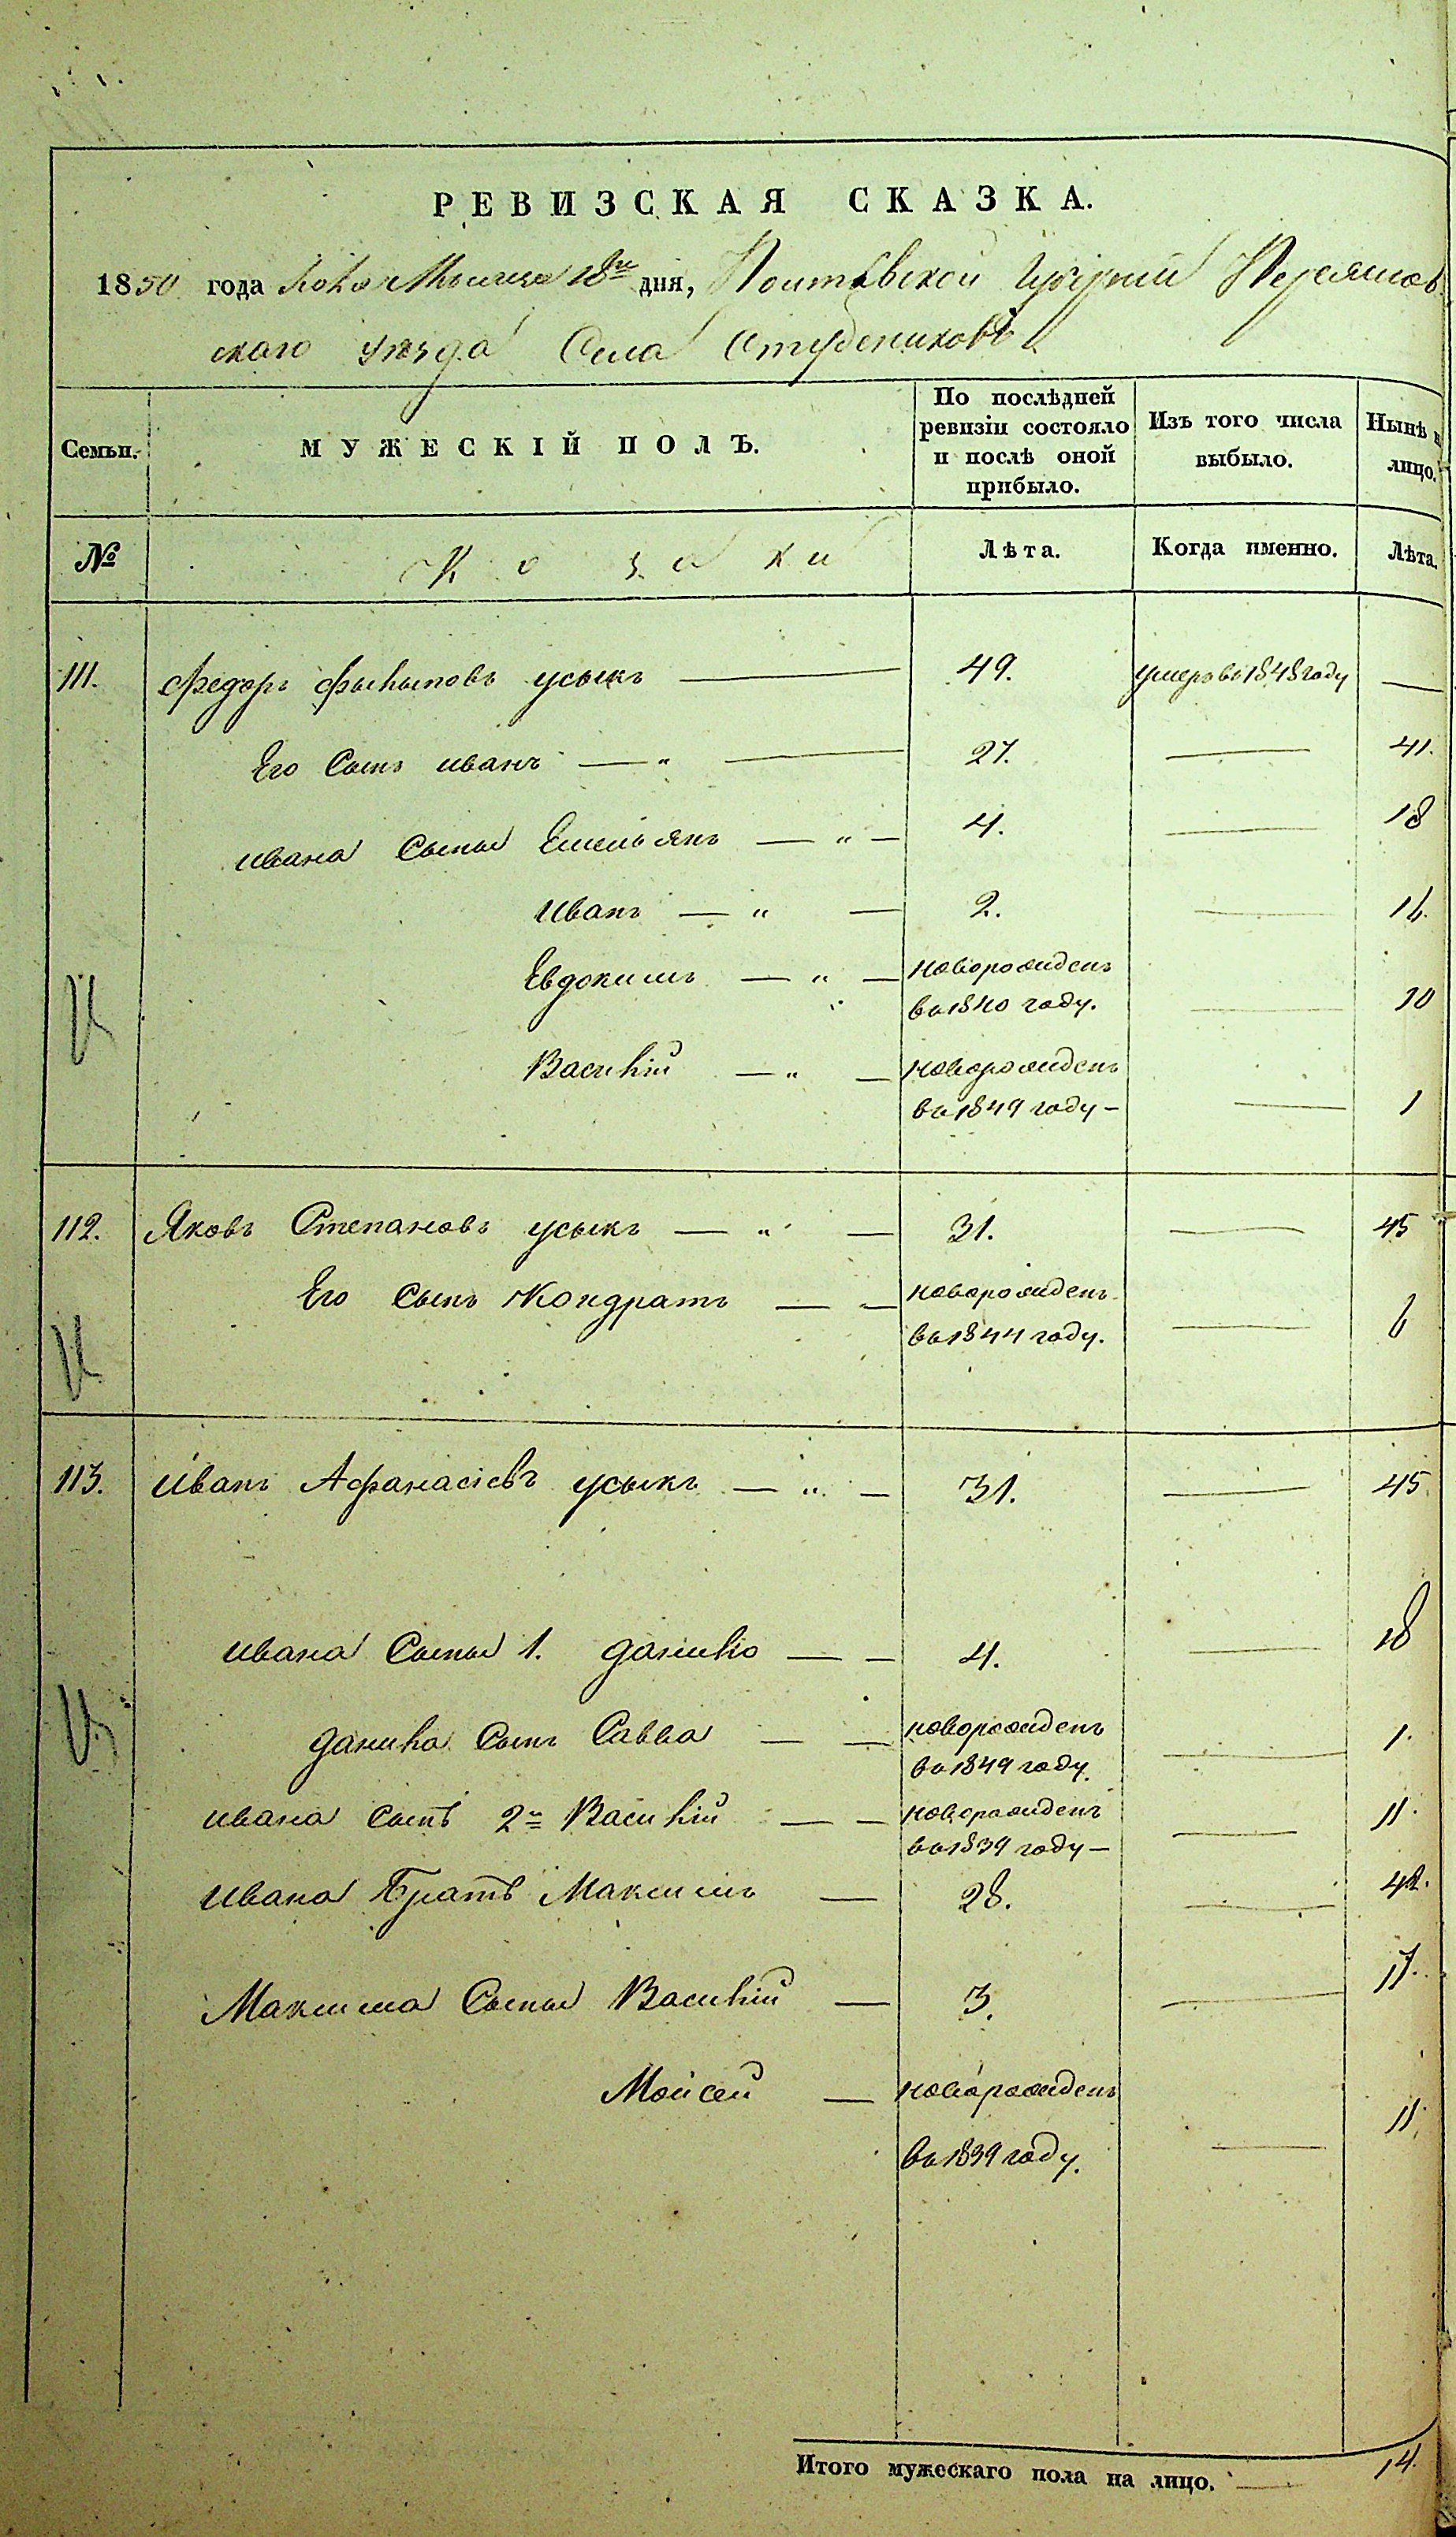 РЕВИЗСКАЯ СКАЗКА.
1850 года Июля Месяца 18го дня, Полтавской Губерніи Переяслов
скаго уѣзда Села Студениковъ
Семьи.
МУЖЕСКІЙ ПОЛЪ.
По послѣдней ревизіи состояло и послѣ оной прибыло.
Изъ того числа выбыло.
Нынѣ н лицо.
№
Козаки
Лѣта.
Когда именно.
Лѣта.
111. Федоръ Филиповъ усыкъ — 49. умеръ в 1848 году —
Его Сынъ иванъ — „ — 27. — 41.
ивана Сыны Емельянъ — „ — 4. — 18
Иванъ — „ — 2. — 16.
Евдокимъ — „ — новорожденъ
в 1840 году. — 10
Василій — „ — новорожденъ
в 1849 году — — 1
112. Яковъ Степановъ усыкъ — „ — 31. — 45
Его Сынъ Кондратъ — — новорожденъ
в 1844 году. — 6
113. Иванъ Афанасіевъ усыкъ — „ — 31. — 45
ивана Сыны 1. данило — — 4. — 18
данила Сынъ Савва — — новорожденъ
в 1849 году. — 1.
ивана сынъ 2й Василій — — новорожденъ
в 1839 году — — 11.
Ивана Братъ Максимъ — 28. — 42.
Максима Сыны Василій — 3. — 17.
Мойсей — новорожденъ
в 1839 году. — 11.
Итого мужескаго пола на лицо. — 14.